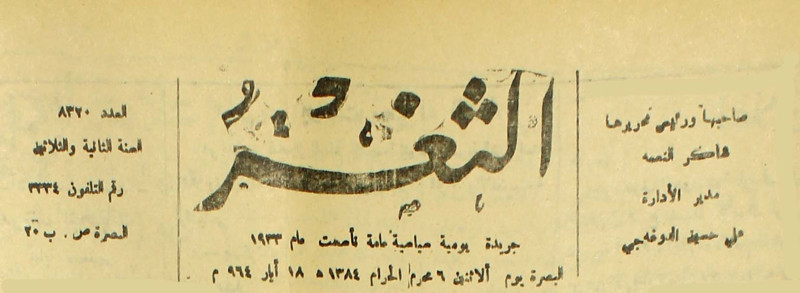 صاحبها ورئيس تحريرها
شاكر النعمه
مدير الأدارة
علي حسين
الثغر
جريدة يومية سياسية عامة تأسست عام ١٩٣٣
البصرة يوم ألاثنين ٦ محرم الحرام ١٣٨٤ ه ١٨ أيار ٩٦٤ م
العدد ٨٣٢٠
السنة الثانية والثلاثين
رقم التلفون ٣٣٣٤
البصرة ص . ب ٢٥